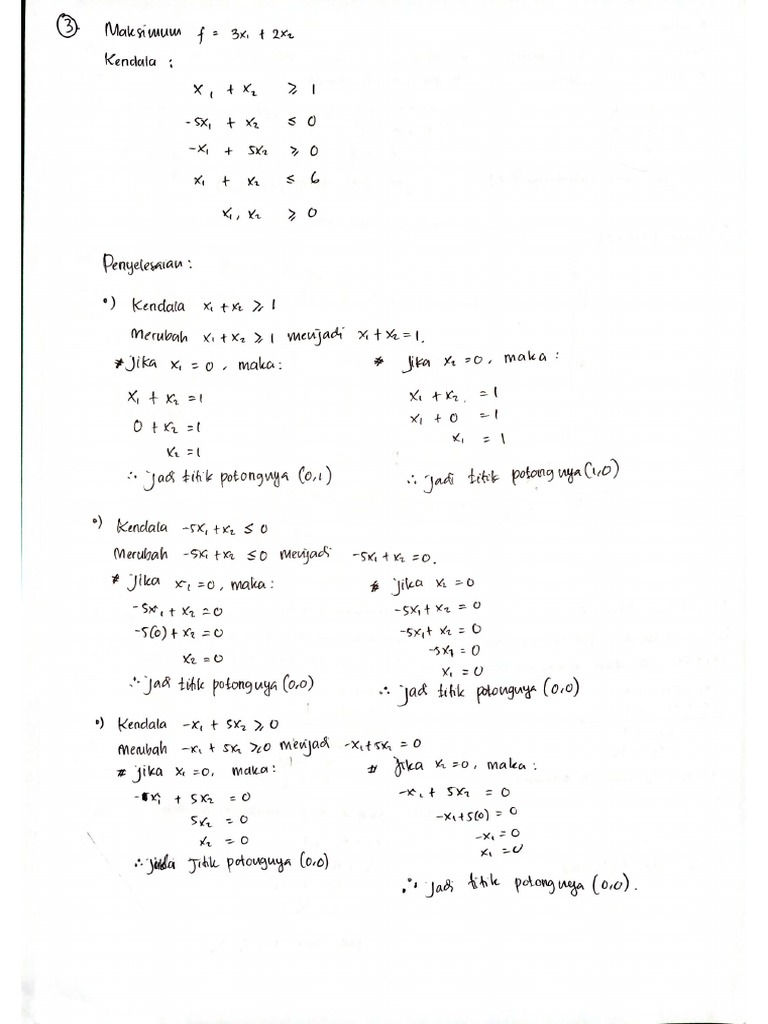 ③ Maksimum f = 3x₁ + 2x₂
Kendala :
x₁ + x₂ ≥ 1
-5x₁ + x₂ ≤ 0
-x₁ + 5x₂ ≥ 0
x₁ + x₂ ≤ 6
x₁, x₂ ≥ 0
Penyelesaian :
•) Kendala x₁ + x₂ ≥ 1
Merubah x₁ + x₂ ≥ 1 menjadi x₁ + x₂ = 1.
* Jika x₁ = 0, maka :
x₁ + x₂ = 1
0 + x₂ = 1
x₂ = 1
∴ jadi titik potongnya (0,1)
* Jika x₂ = 0, maka :
x₁ + x₂ = 1
x₁ + 0 = 1
x₁ = 1
∴ jadi titik potongnya (1,0)
•) Kendala -5x₁ + x₂ ≤ 0
Merubah -5x₁ + x₂ ≤ 0 menjadi -5x₁ + x₂ = 0.
* Jika x₁ = 0, maka :
-5x₁ + x₂ = 0
-5(0) + x₂ = 0
x₂ = 0
∴ jadi titik potongnya (0,0)
* Jika x₂ = 0
-5x₁ + x₂ = 0
-5x₁ + x₂ = 0
-5x₁ = 0
x₁ = 0
∴ jadi titik potongnya (0,0)
•) Kendala -x₁ + 5x₂ ≥ 0
Merubah -x₁ + 5x₂ ≥ 0 menjadi -x₁ + 5x₂ = 0
* Jika x₁ = 0, maka :
-x₁ + 5x₂ = 0
5x₂ = 0
x₂ = 0
∴ titik potongnya (0,0)
* Jika x₂ = 0, maka :
-x₁ + 5x₂ = 0
-x₁ + 5(0) = 0
-x₁ = 0
x₁ = 0
∴ jadi titik potongnya (0,0).